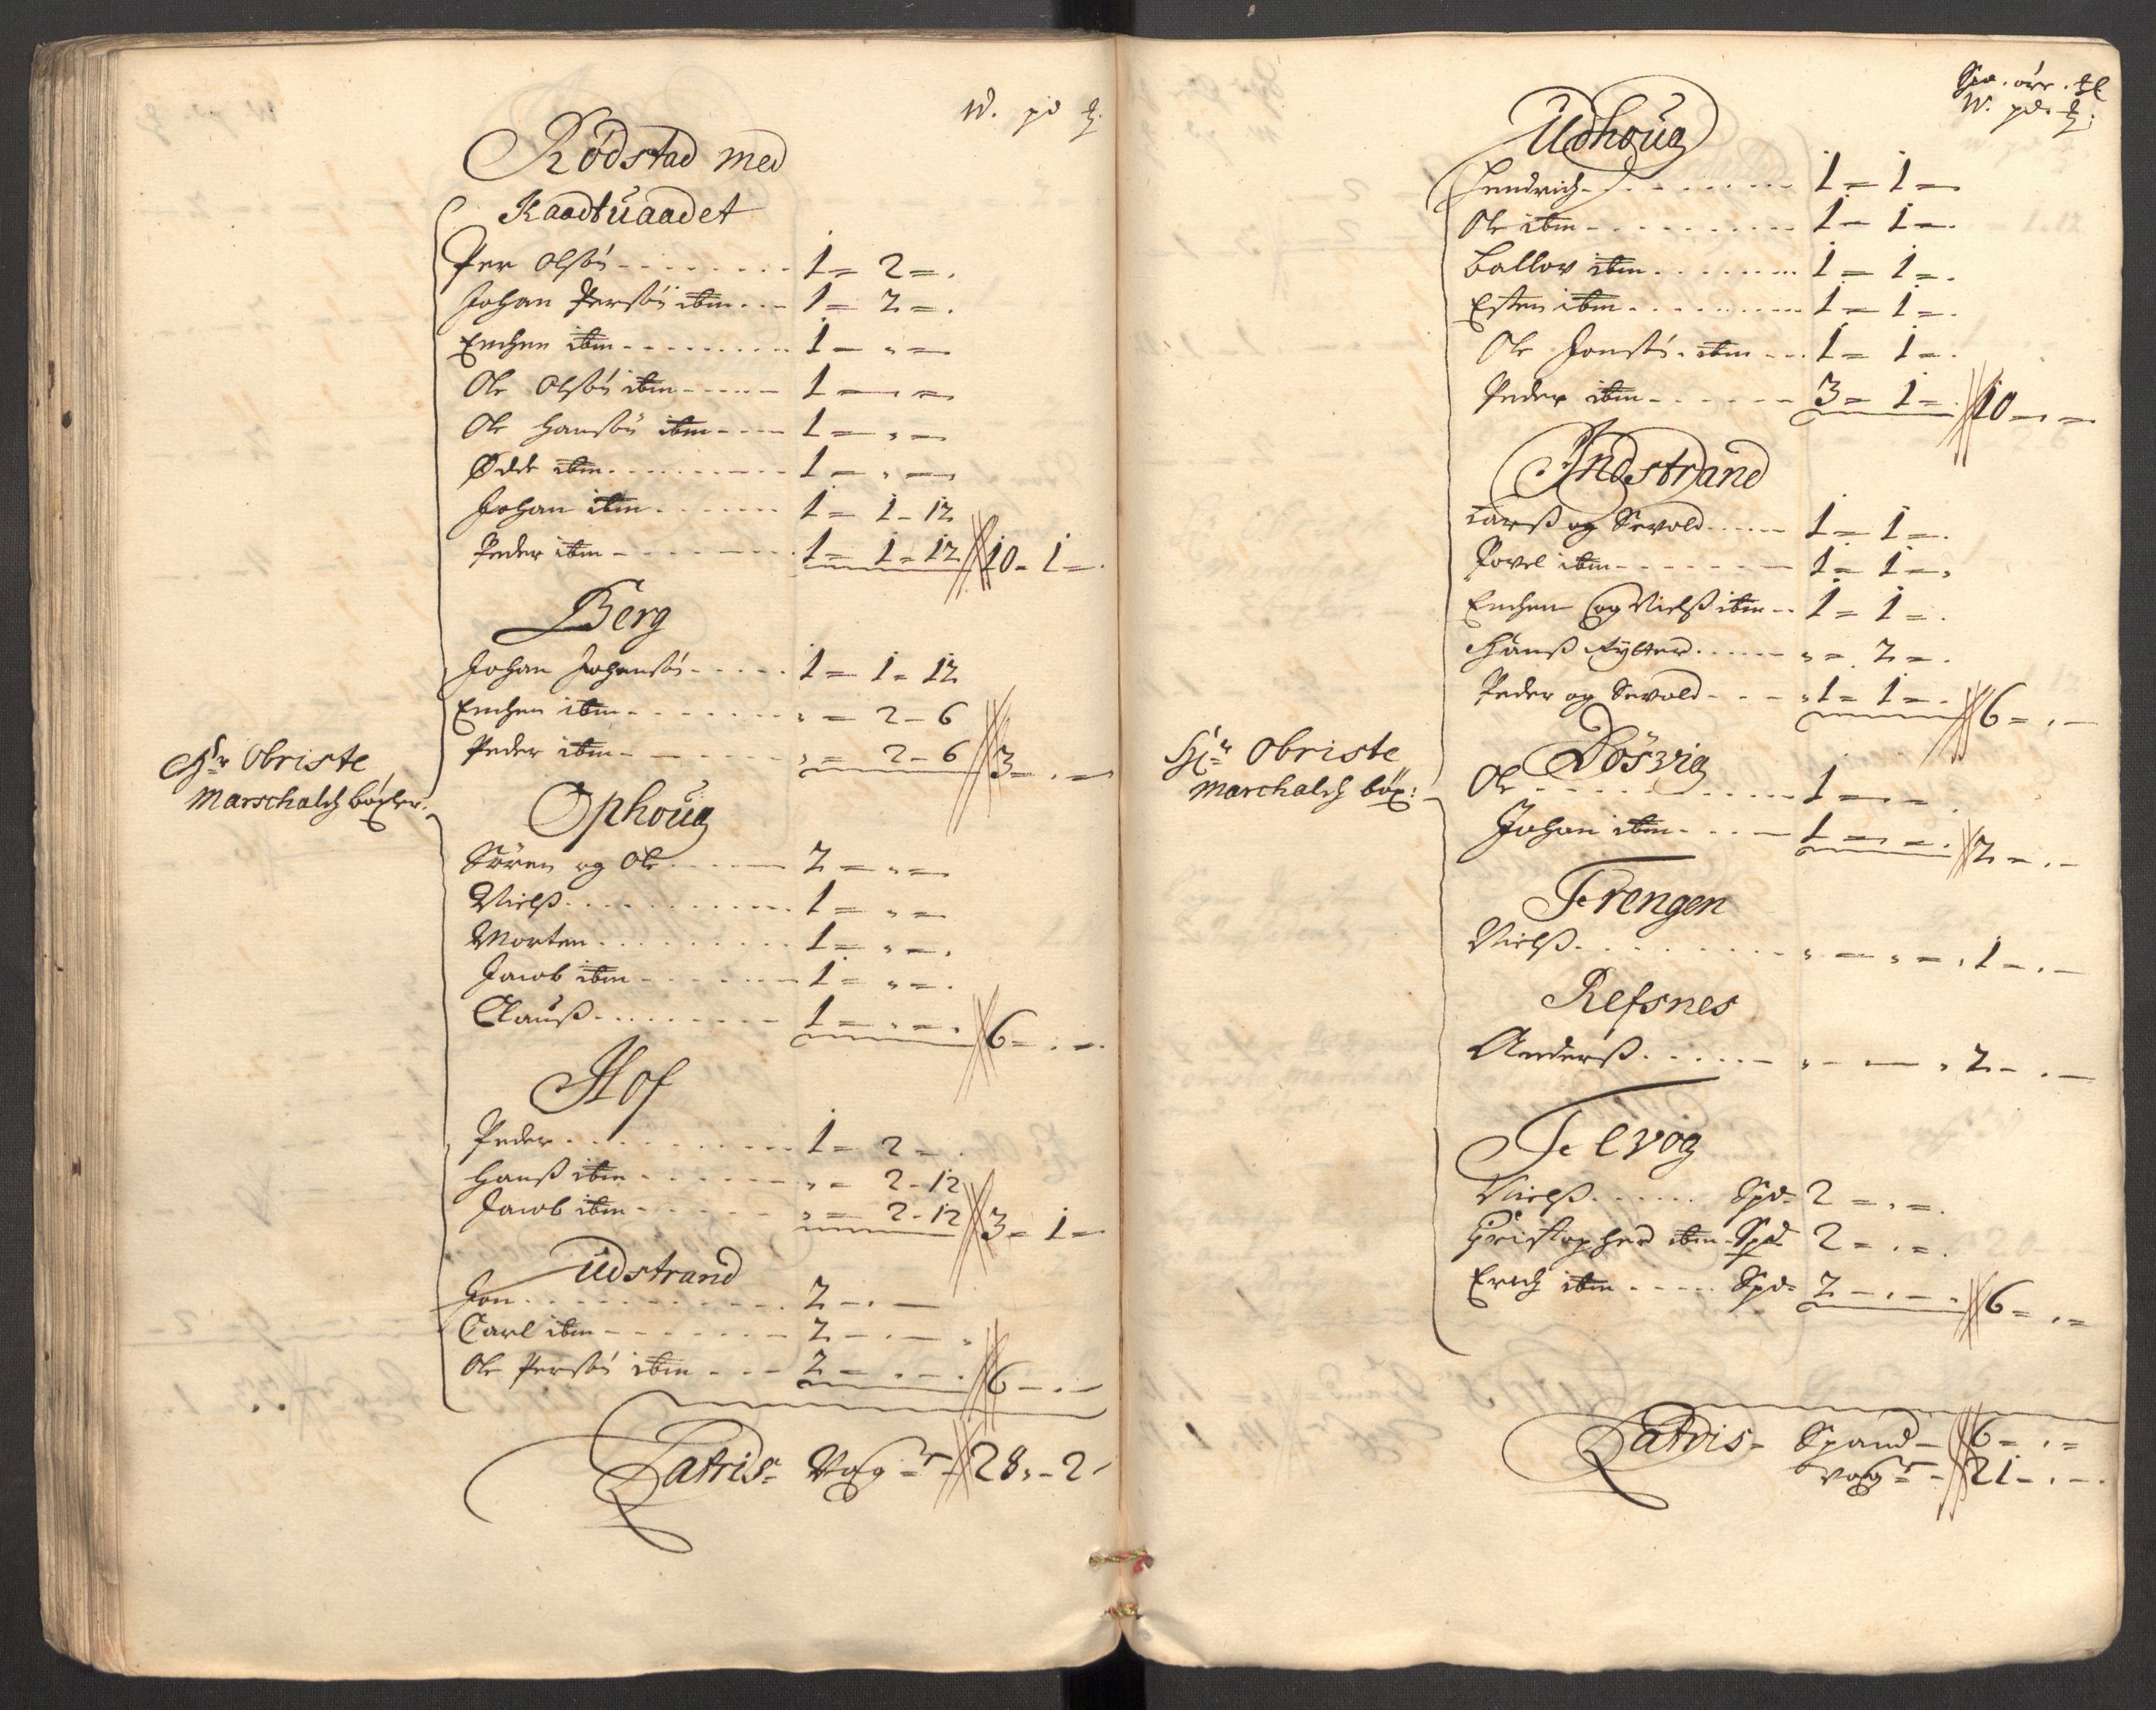 W. pd ℔.
Rödstad med
Kaadtuaadet
Per Olsön - - - - - 1 = 2 = .
Johan Persön ibm - - - 1 = 2 = .
Enchen ibm - - - - - 1 = " =
Ole Olsön ibm - - - - 1 = " =
Ole Hansön ibm - - - - 1 = " =
Odde ibm - - - - - 1 = " =
Johan ibm - - - - - 1 = 1 - 12
Peder ibm - - - - - 1 = 1 = 12 // 10 - 1 = .
Berg
Johan Johansön - - - - - 1 = 1 = 12
Enchen ibm - - - - - " = 2 - 6
Peder ibm - - - - - " = 2 - 6 // 3 = . =
Hr Obriste
Marschalch böxler.
Ophoug
Sören og Ole - - - - 2 = " =
Nielß - - - - - 1 = " =
Morten - - - - - 1 = " = .
Jacob ibm - - - - - 1 = " = .
Clauß - - - - - 1 = " = . // 6 = . = .
Hof
Peder - - - - - 1 = 2 = .
Hanß ibm - - - - - " = 2 - 12
Jacob ibm - - - - - " = 2 - 12 // 3 = 1 =
Udstrand
Jon - - - - - 2 - . -
Carl ibm - - - - - 2 - . - .
Ole Persön ibm - - - 2 = . - . // 6 - . -
Latris Wogr // 28 " - 2 -
Spa. öre . ℔
W. pd. ℔.
Udhoug
Hendrich - - - - - 1 = 1 =
Ole ibm - - - - - 1 - 1 = .
Ballor ibm - - - - - 1 = 1 = .
Esten ibm - - - - - 1 = 1 = .
Ole Jonsön ibm - - - 1 = 1 = .
Peder ibm - - - - - 3 = 1 = . // 10 - . =
Indstrand
Larß og Sevold - - - - 1 = 1 = .
Povel ibm - - - - - 1 = 1 = "
Enchen og Nielß ibm - - 1 = 1 = .
Hanß Rytter - - - - " = 2 = .
Peder og Sevold - - - 1 = 1 = . // 6 = . -
Hr Obriste
Marchalch böx:
Dösvig
Ole - - - - - 1 = . = .
Johan ibm - - - - 1 = . = . // 2 = . -
Frengen
Nielß - - - - - " = " = " 1 = . -
Refsnes
Anderß - - - - - " - - " 2 - . -
Felvog
Nielß - - - - Spd = 2 = . = .
Christopher ibm - Spd 2 = . = .
Erich ibm - - - - Spd = 2 - . - . // 6 = . =
Latris - Spand - // 6 = . =
Wogr - // 21 - . - .